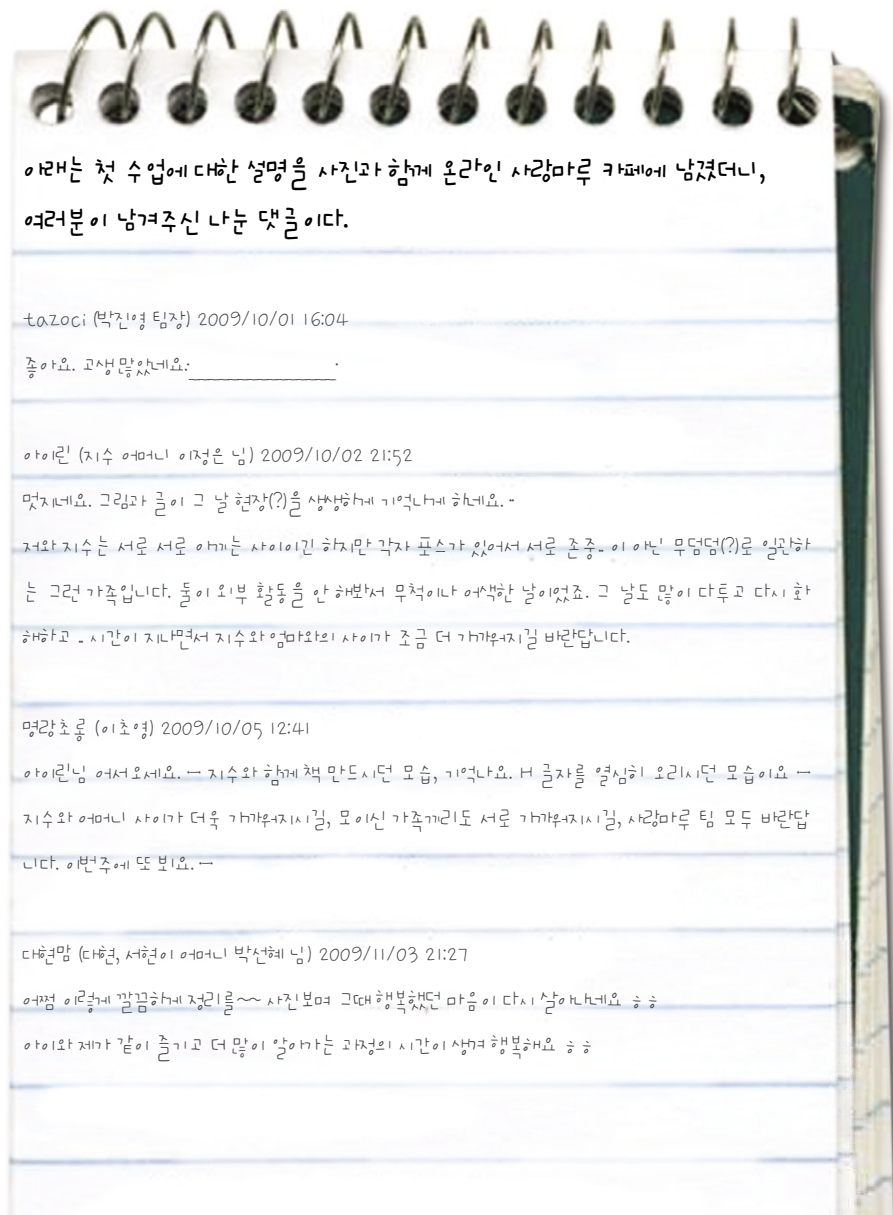 아래는 첫 수업에 대한 설명을 사진과 함께 온라인 사랑마루 카페에 남겼더니,
여러분이 남겨주신 나눈 댓글이다.
tazoci (박진영 팀장) 2009/10/01 16:04
좋아요. 고생많았네요:
아이린 (지수 어머니 이정은 님) 2009/10/02 21:52
멋지네요. 그림과 글이 그 날 현장(?)을 생생하게 기억나게 하네요. -
저와 지수는 서로 서로 아끼는 사이이긴 하지만 각자 포스가 있어서 서로 존중.. 이 아닌 무덤덤(?)로 일관하
는 그런 가족입니다. 둘이 외부 활동을 안 해봐서 무척이나 어색한 날이었죠. 그 날도 많이 다투고 다시 화
해하고 .. 시간이 지나면서 지수와 엄마와의 사이가 조금 더 가까워지길 바란답니다.
명랑초롱 (이초영) 2009/10/05 12:41
아이린님 어서오세요. ㅡ 지수와 함께 책 만드시던 모습, 기억나요. H 글자를 열심히 오리시던 모습이요 ㅡ
지수와 어머니 사이가 더욱 가까워지시길, 모이신 가족끼리도 서로 가까워지시길, 사랑마루 팀 모두 바란답
니다. 이번주에 또 뵈요. ㅡ
대현맘 (대현, 서현이 어머니 박선혜 님) 2009/11/03 21:27
어쩜 이렇게 깔끔하게 정리를~~ 사진보며 그때행복했던 마음이 다시 살아나네요 ㅎㅎ
아이와 제가 같이 즐기고 더 많이 알아가는 과정의 시간이 생겨 행복해요 ㅎㅎ